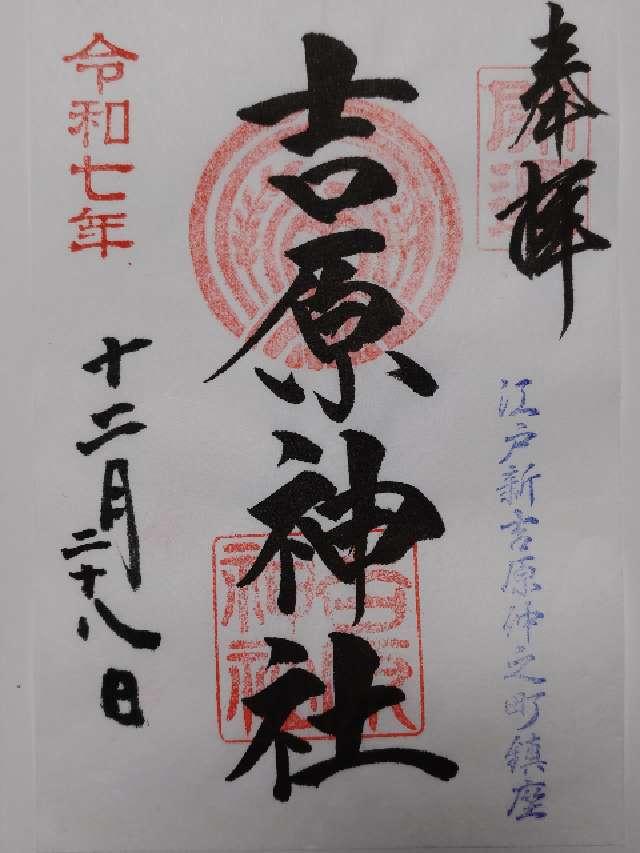 奉拝
江戸新吉原仲之町鎮座
吉原神社
吉原
神社
令和七年
十二月二十八日